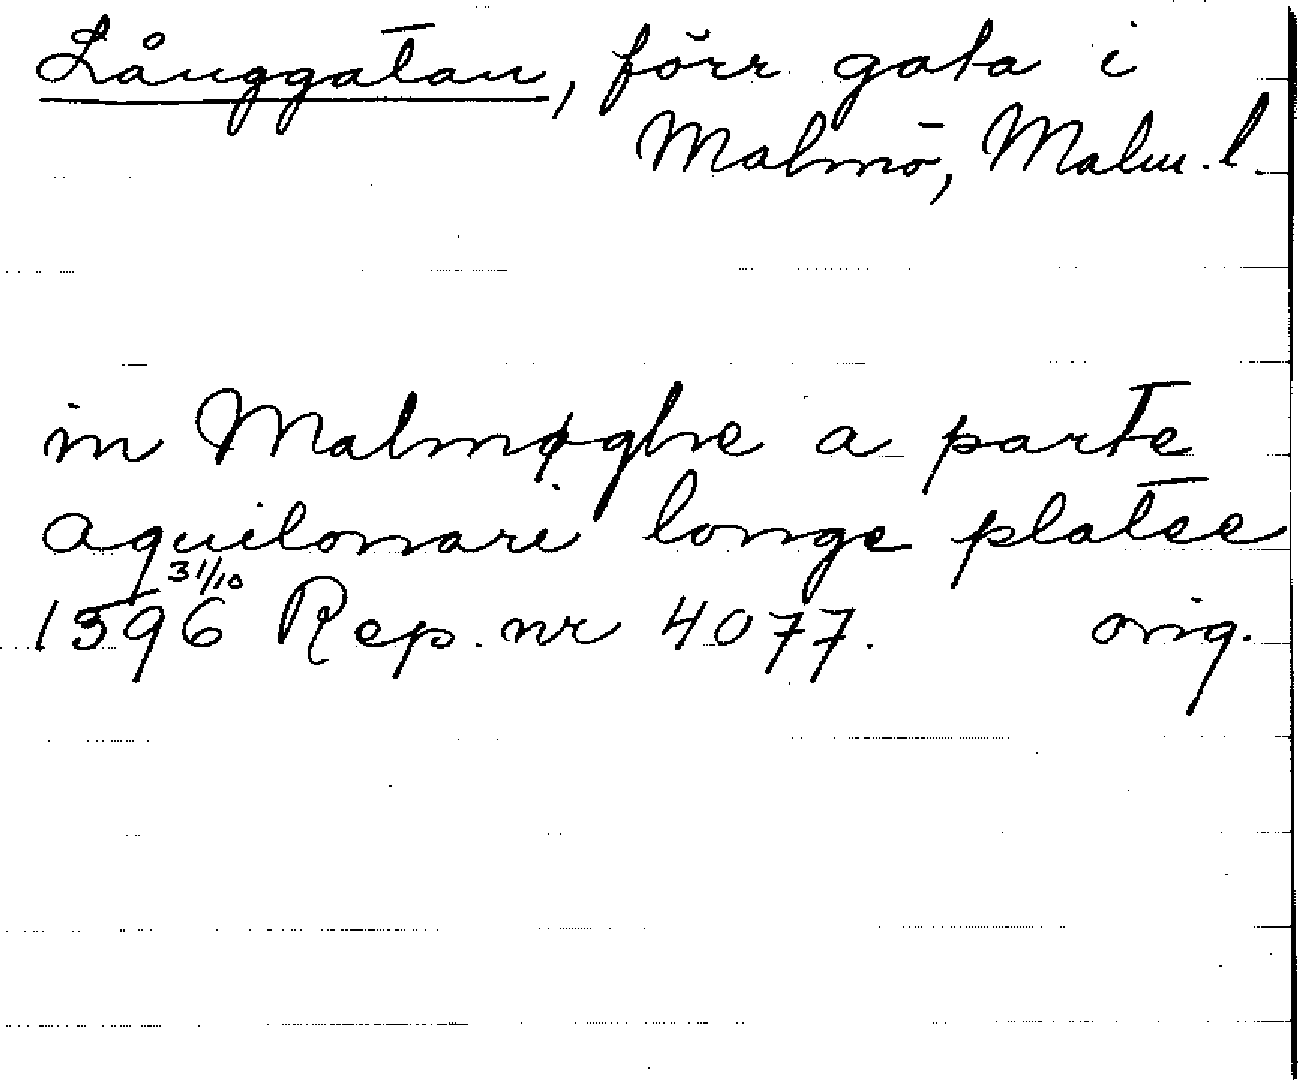 Långgatan, förr gata i
Malmö, Malm. l.
in Malmøghe a parte
aquilonari longe platee
1396 31/10 Rep. nr 4077. orig.